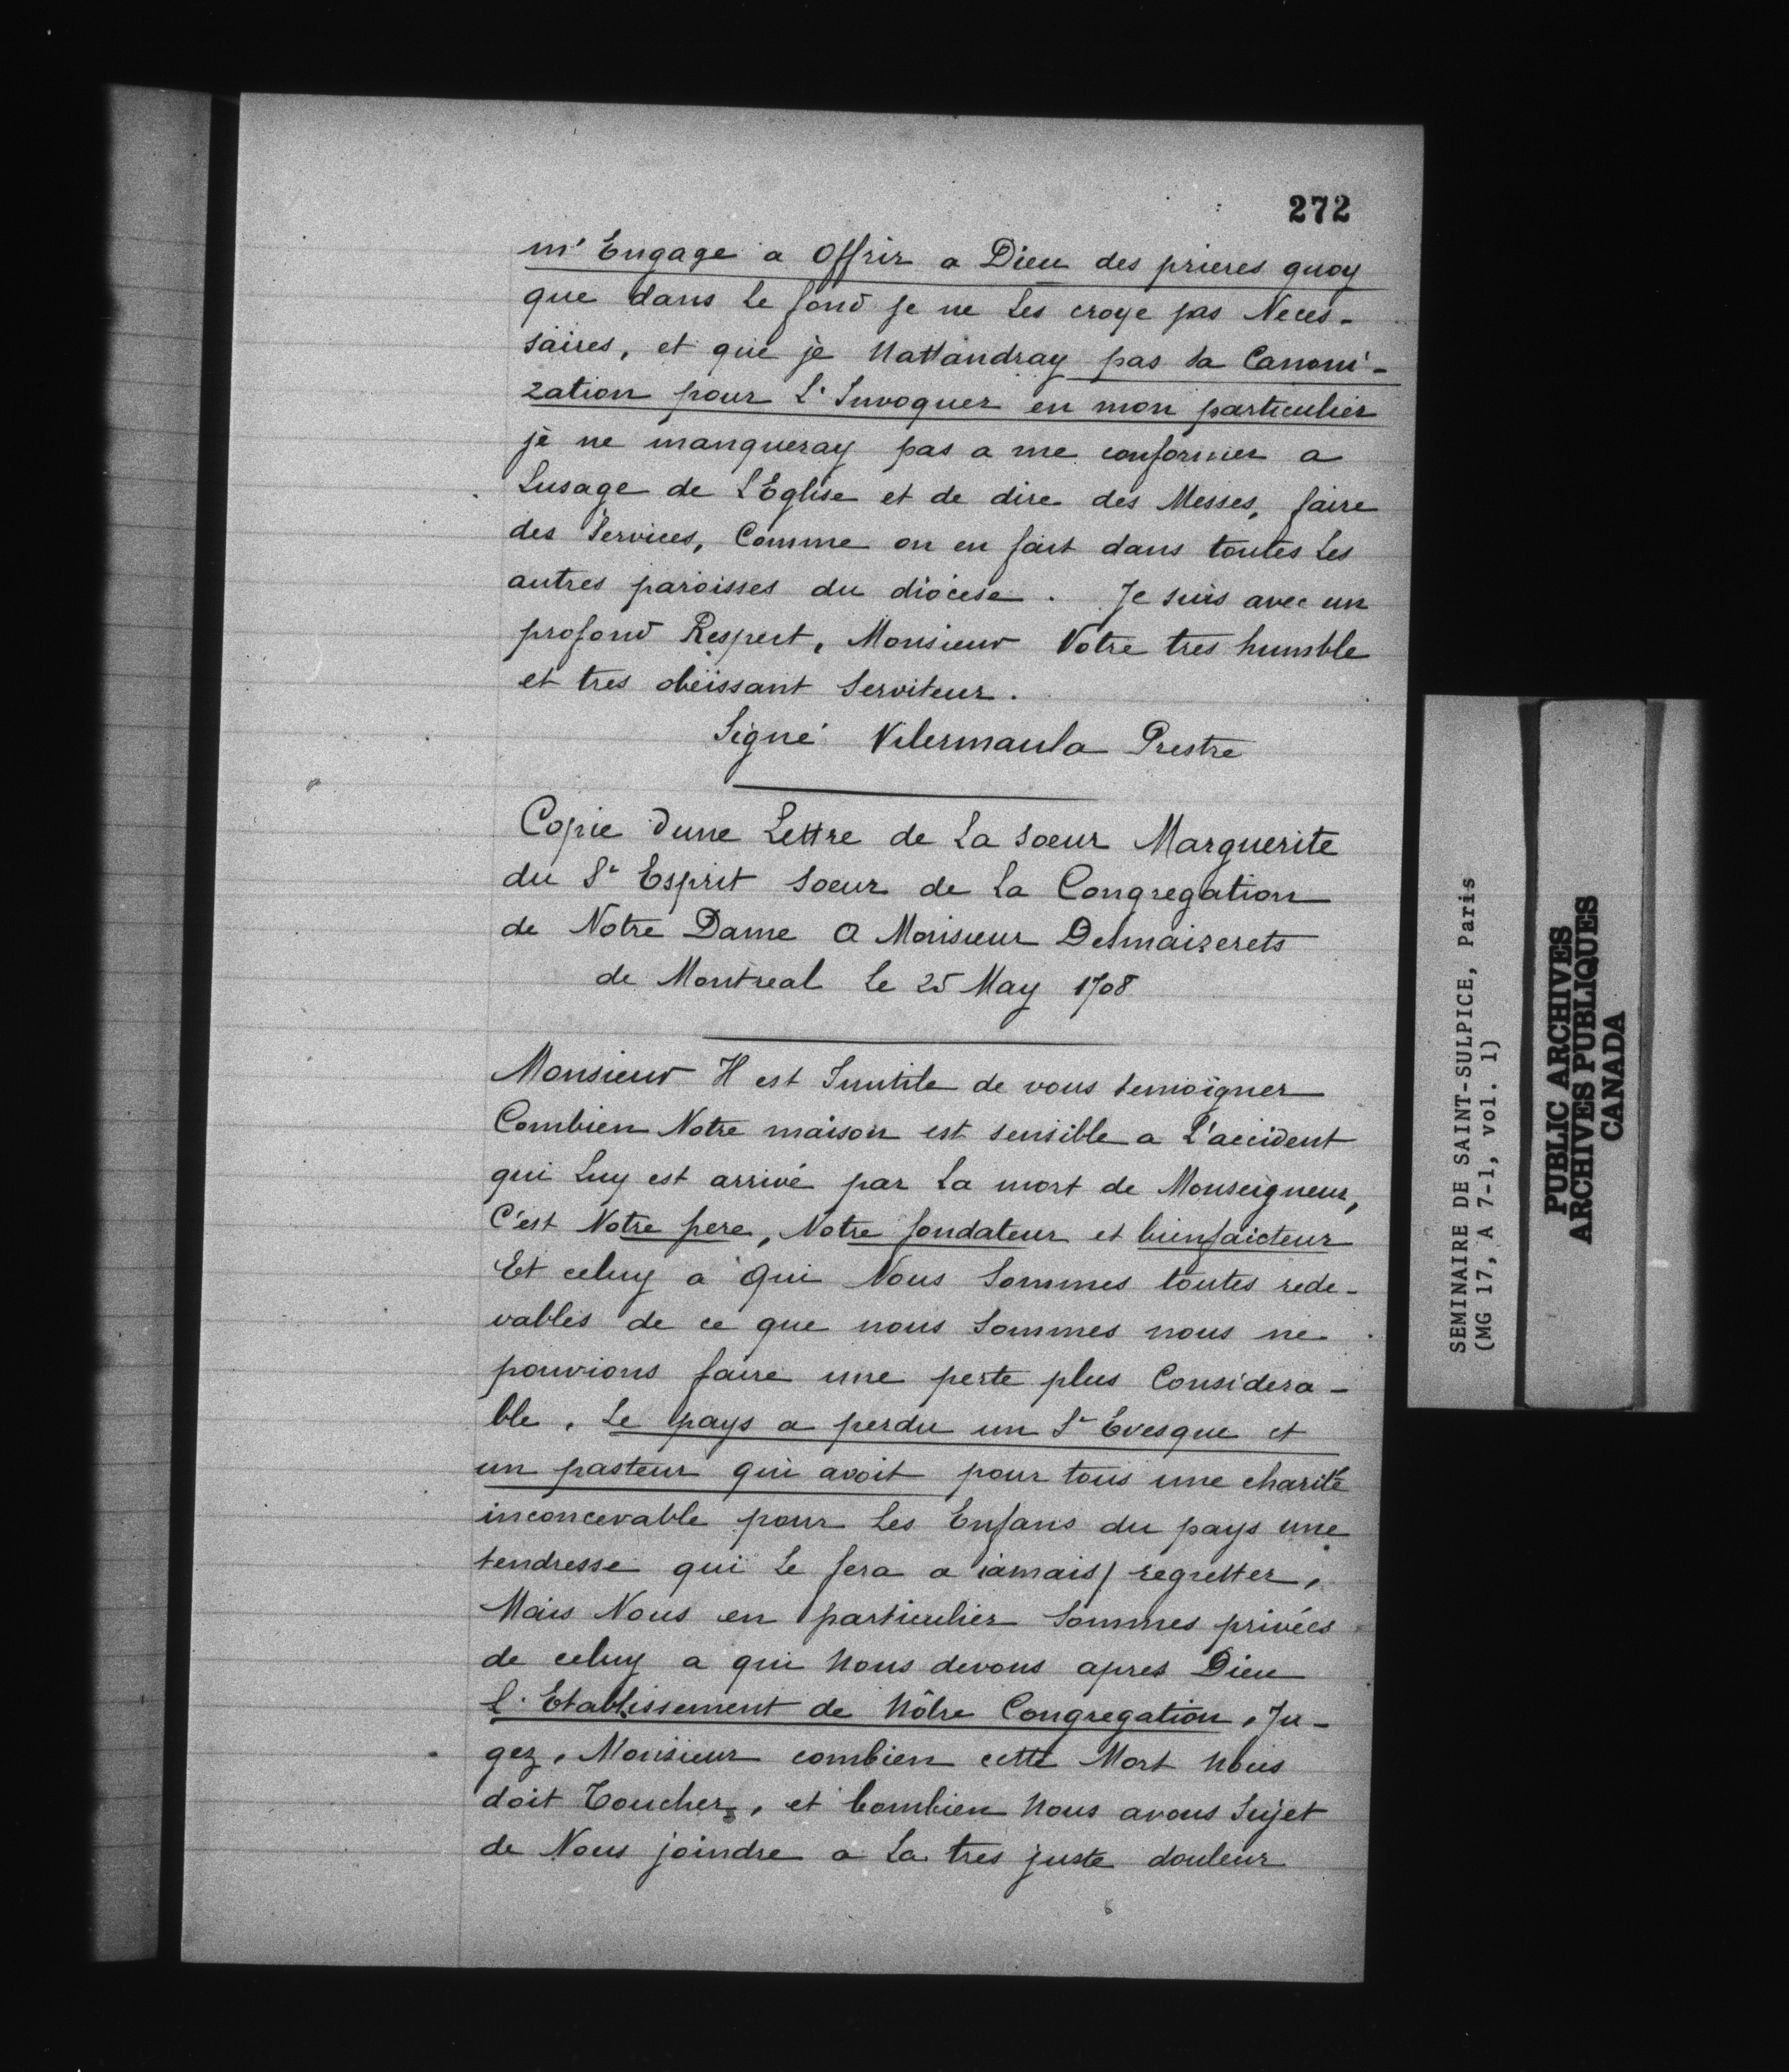 272
m'Engage a Offrir a Dieu des prieres quoy
que dans le fond je ne les croye pas Neces-
saires, et que je Nattandray pas sa Canoni-
zation pour L'Invoquer en mon particulier
je ne manqueray pas a me conformer a
Lusage de L'Eglise et de dire des Messes, faire
des Services, Comme on en fait dans toutes Les
autres paroisses du diocese. Je suis avec un
profond Respect, Monsieur Votre tres humble
et tres obeissant Serviteur.
Signé Vilermaula Prestre
Copie dune Lettre de La soeur Marguerite
du St Esprit soeur de La Congregation
de Notre Dame A Monsieur Desmaizerets
de Montreal le 25 May 1708
Monsieur Il est Inutile de vous temoigner
Combien Notre maison est sensible a L'accident
qui Luy est arrivé par La mort de Monseigneur,
C'est Notre pere, Notre fondateur et bienfaicteur
Et celuy a Qui Nous Sommes toutes rede-
vables de ce que nous Sommes nous ne
pouvions faire une perte plus Considera-
ble. Le pays a perdu un St Evesque et
un pasteur qui avoit pour tous une charité
inconcevable pour Les Enfans du pays une
tendresse qui Le fera a iamais regretter,
Mais Nous en particulier Sommes privées
de celuy a qui Nous devons apres Dieu
L'Etablissement de Nôtre Congregation, Ju-
gez, Monsieur combien cette Mort Nous
doit Toucher, et Combien Nous avons Sujet
de Nous joindre a La tres juste douleur
SEMINAIRE DE SAINT-SULPICE, Paris
(MG 17, A 7-1, vol. 1)
PUBLIC ARCHIVES
ARCHIVES PUBLIQUES
CANADA